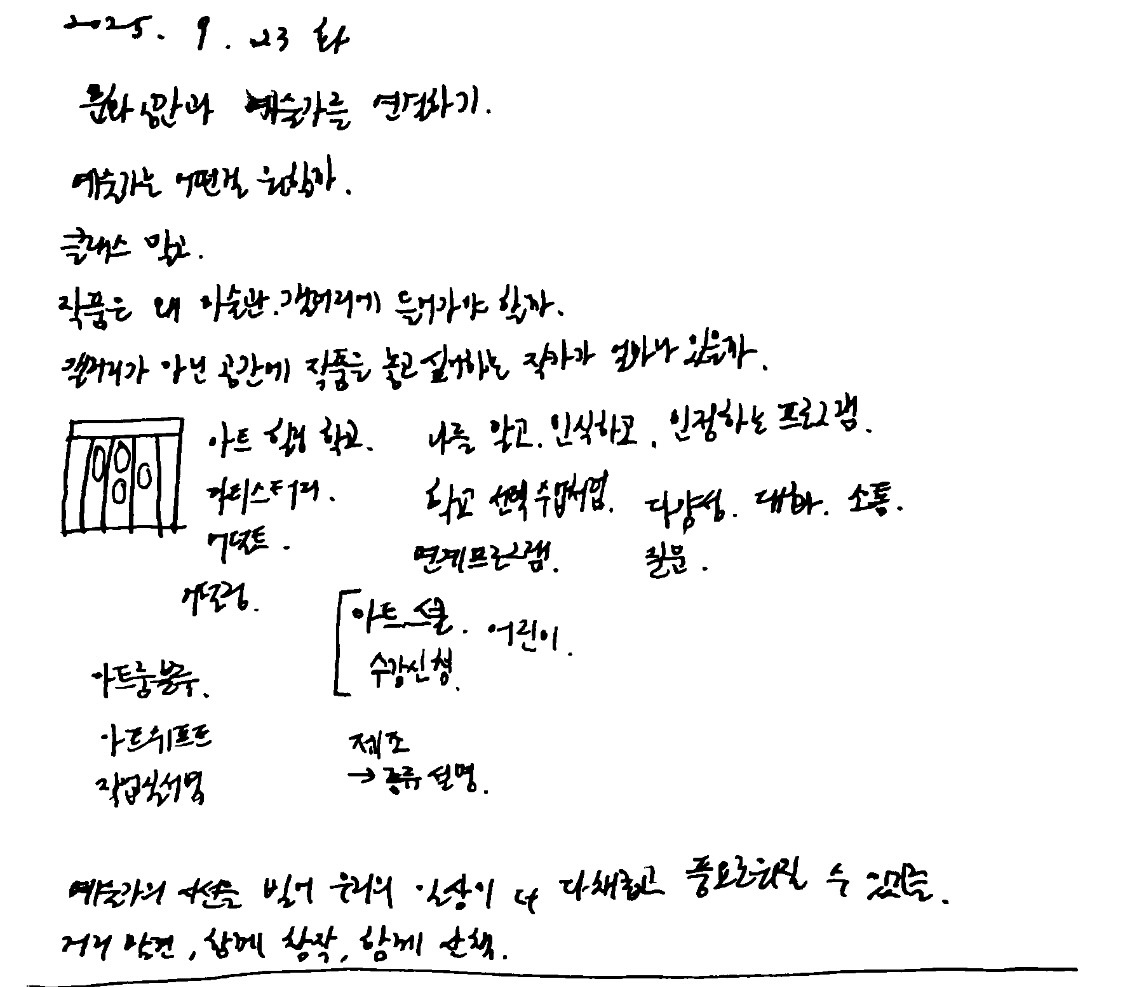 2025. 9. 23 화
문화 예술가를 연결하기.
예술가는 어떤걸 원할까.
클래스 말고.
작품은 왜 미술관. 갤러리에 들어가야 할까.
갤러리가 아닌 공간에 작품을 놓고 싶어하는 작가가 얼마나 있을까.
아트 학교. 나를 알고. 인식하고, 인정하는 프로그램.
학교 선택 수업처럼. 다양성. 대화. 소통.
연계프로그램. 질문.
아트스쿨. 어린이.
수강신청.
아트
제조
작업실
→ 종류 설명.
예술가의 시선을 빌어 우리의 일상이 더 다채롭고 풍요로워질 수 있음.
거리 발견, 함께 창작, 함께 산책.